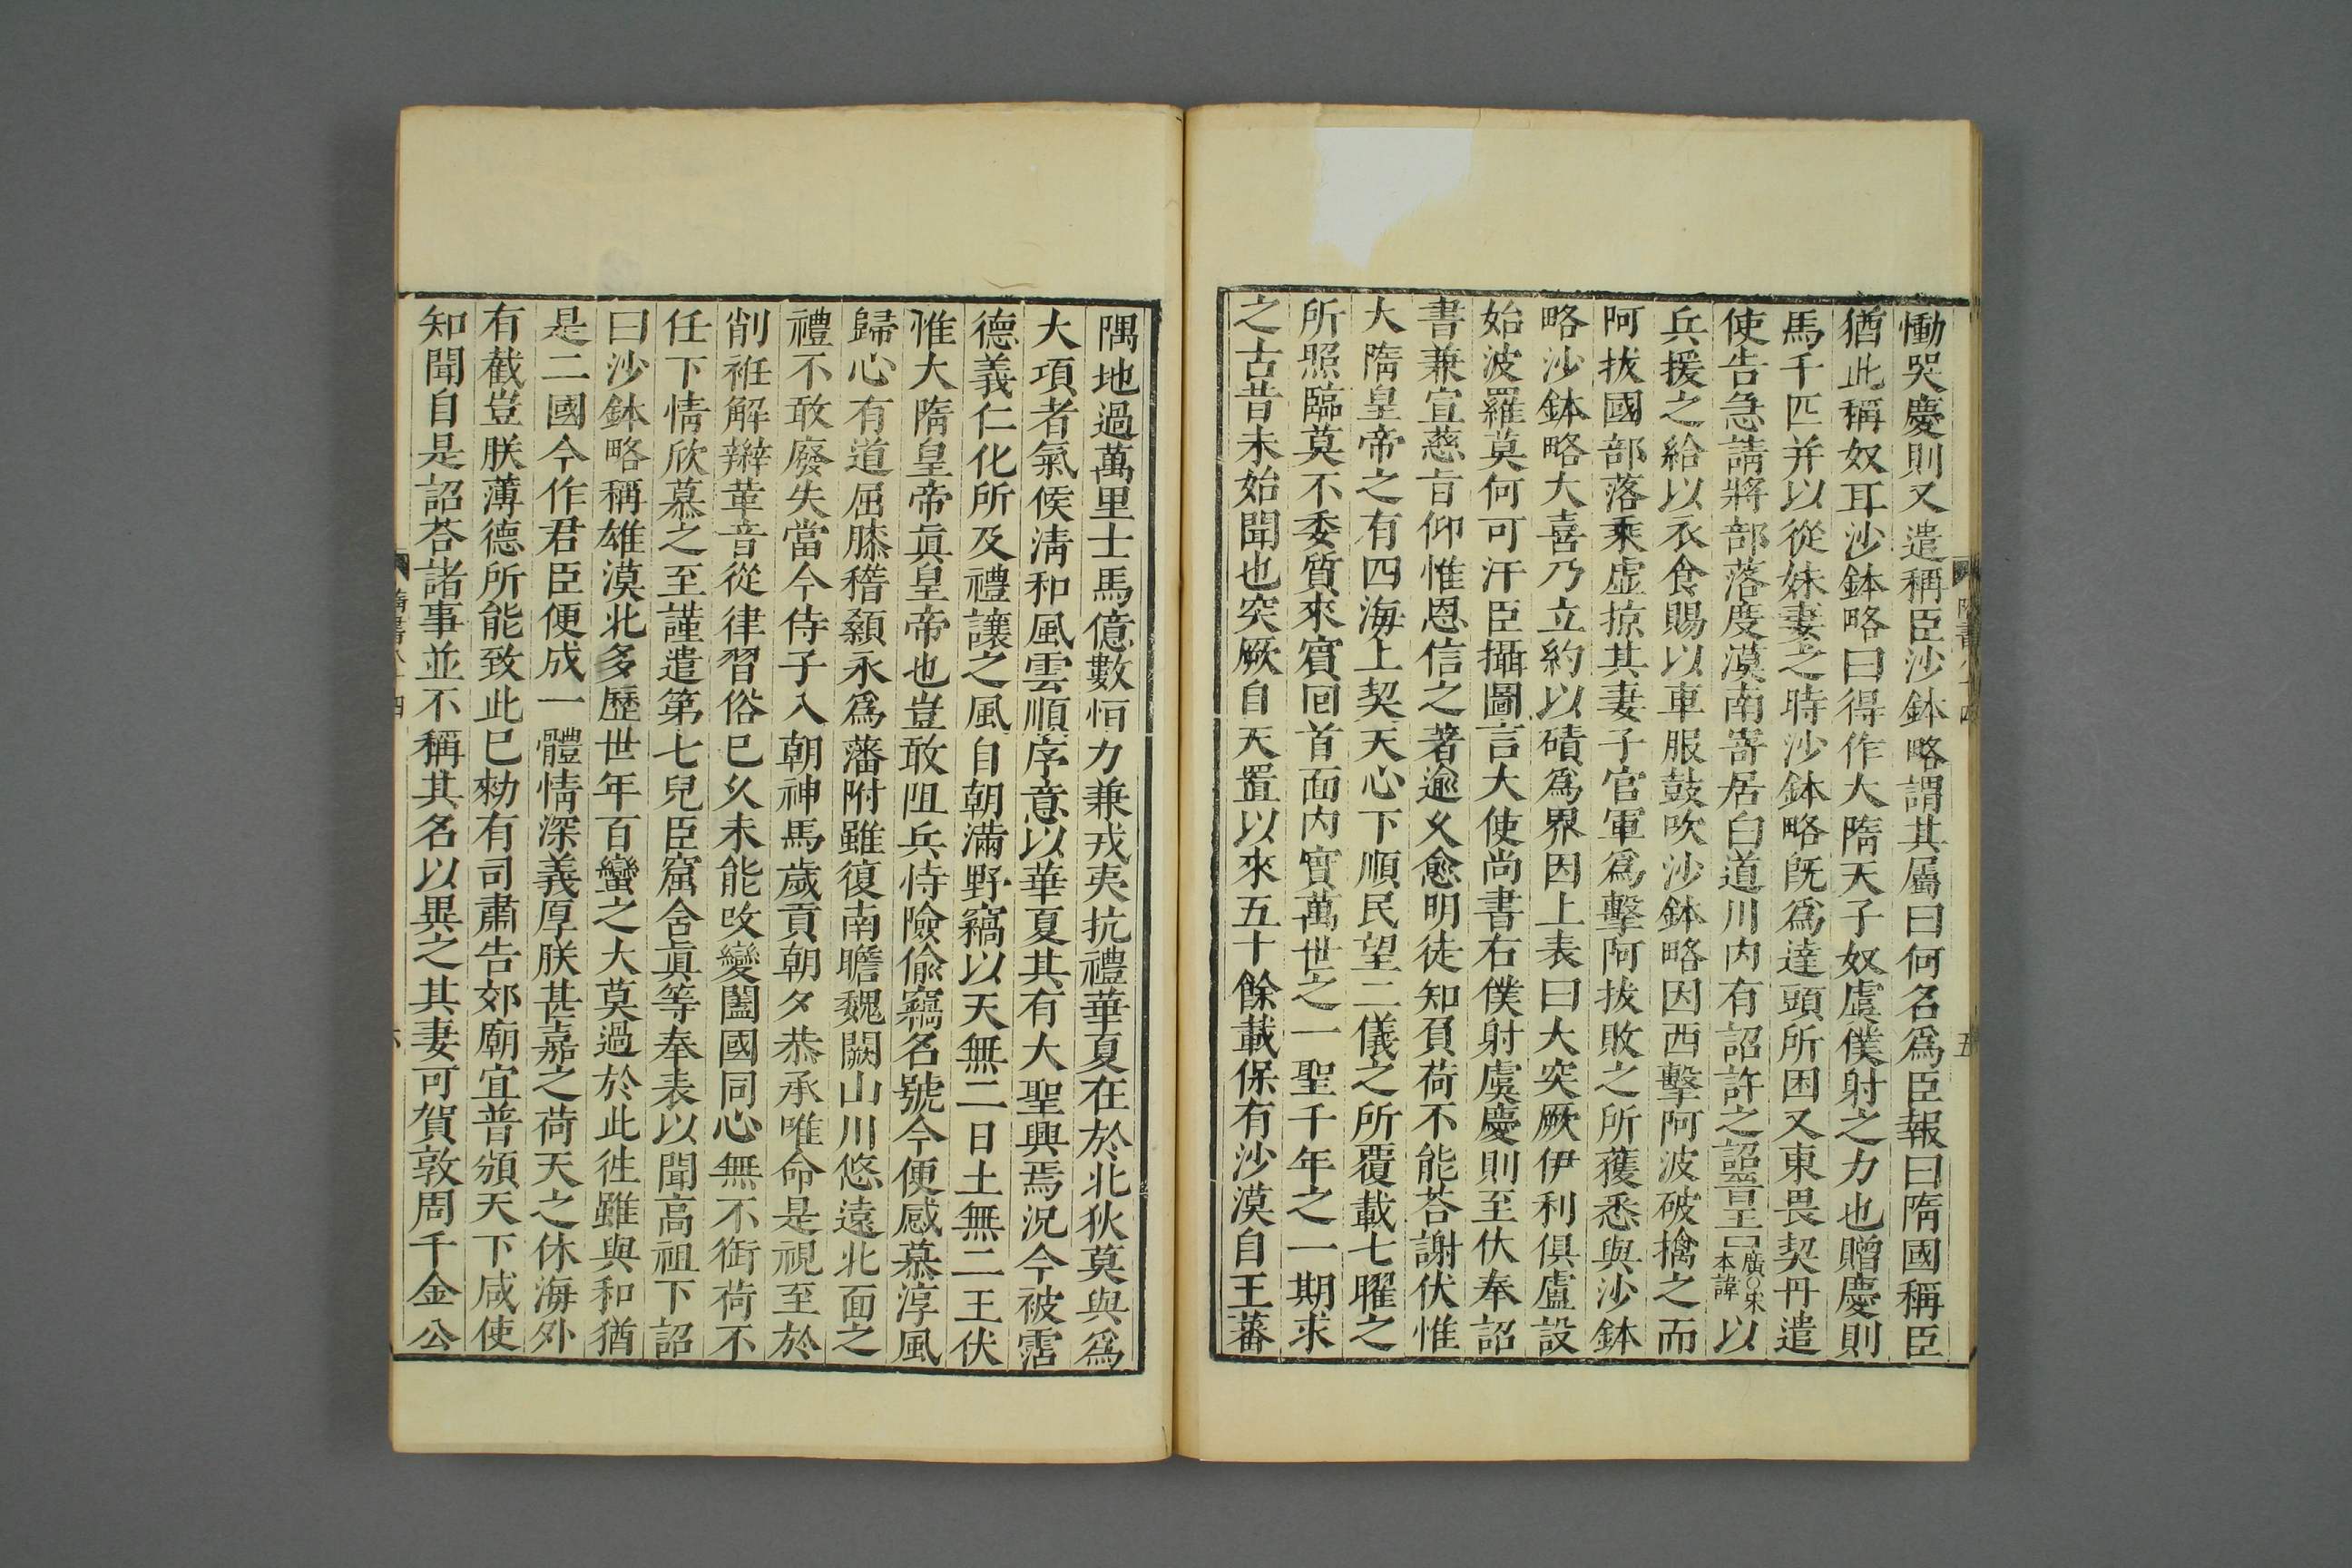 慟哭慶則又遣稱臣沙鉢略謂其屬曰何名爲臣報曰隋國稱臣
猶此稱奴耳沙鉢略曰得作大隋天子奴虞僕射之力也贈慶則
馬千匹并以從妹妻之時沙鉢略旣爲達頭所困又東畏契丹遣
使告急請將部落度漠南寄居白道川内有詔許之詔晋王廣○宋本諱以
兵援之給以衣食賜以車服鼓吹沙鉢略因西擊阿波破擒之而
阿拔國部落乘虛掠其妻子官軍爲擊阿拔敗之所獲悉與沙鉢
略沙鉢略大喜乃立約以磧爲界因上表曰大突厥伊利俱盧設
始波羅莫何可汗臣攝圖言大使尚書右僕射虞慶則至伏奉詔
書兼宣慈旨仰惟恩信之著逾久愈明徒知負荷不能荅謝伏惟
大隋皇帝之有四海上契天心下順民望二儀之所覆載七曜之
所照臨莫不委質來賓回首面内實萬世之一聖千年之一期求
之古昔未始聞也突厥自天置以來五十餘載保有沙漠自王蕃
隋書八十四
五
隅地過萬里士馬億數恒力兼戎夷抗禮華夏在於北狄莫與爲
大項者氣候淸和風雲順序意以華夏其有大聖興焉況今被霑
德義仁化所及禮讓之風自朝滿野竊以天無二日土無二王伏
惟大隋皇帝眞皇帝也豈敢阻兵恃險偷竊名號今便感慕淳風
歸心有道屈膝稽顙永爲藩附雖復南瞻魏闕山川悠遠北面之
禮不敢廢失當今侍子入朝神馬歲貢朝夕恭承唯命是視至於
削袵解辮革音從律習俗已久未能改變闔國同心無不銜荷不
任下情欣慕之至謹遣第七兒臣窟含眞等奉表以聞高祖下詔
曰沙鉢略稱雄漠北多歷世年百蠻之大莫過於此徃雖與和猶
是二國今作君臣便成一體情深義厚朕甚嘉之荷天之休海外
有截豈朕薄德所能致此已勑有司肅告郊廟宜普頒天下咸使
知聞自是詔荅諸事並不稱其名以異之其妻可賀敦周千金公
隋書八十四
六